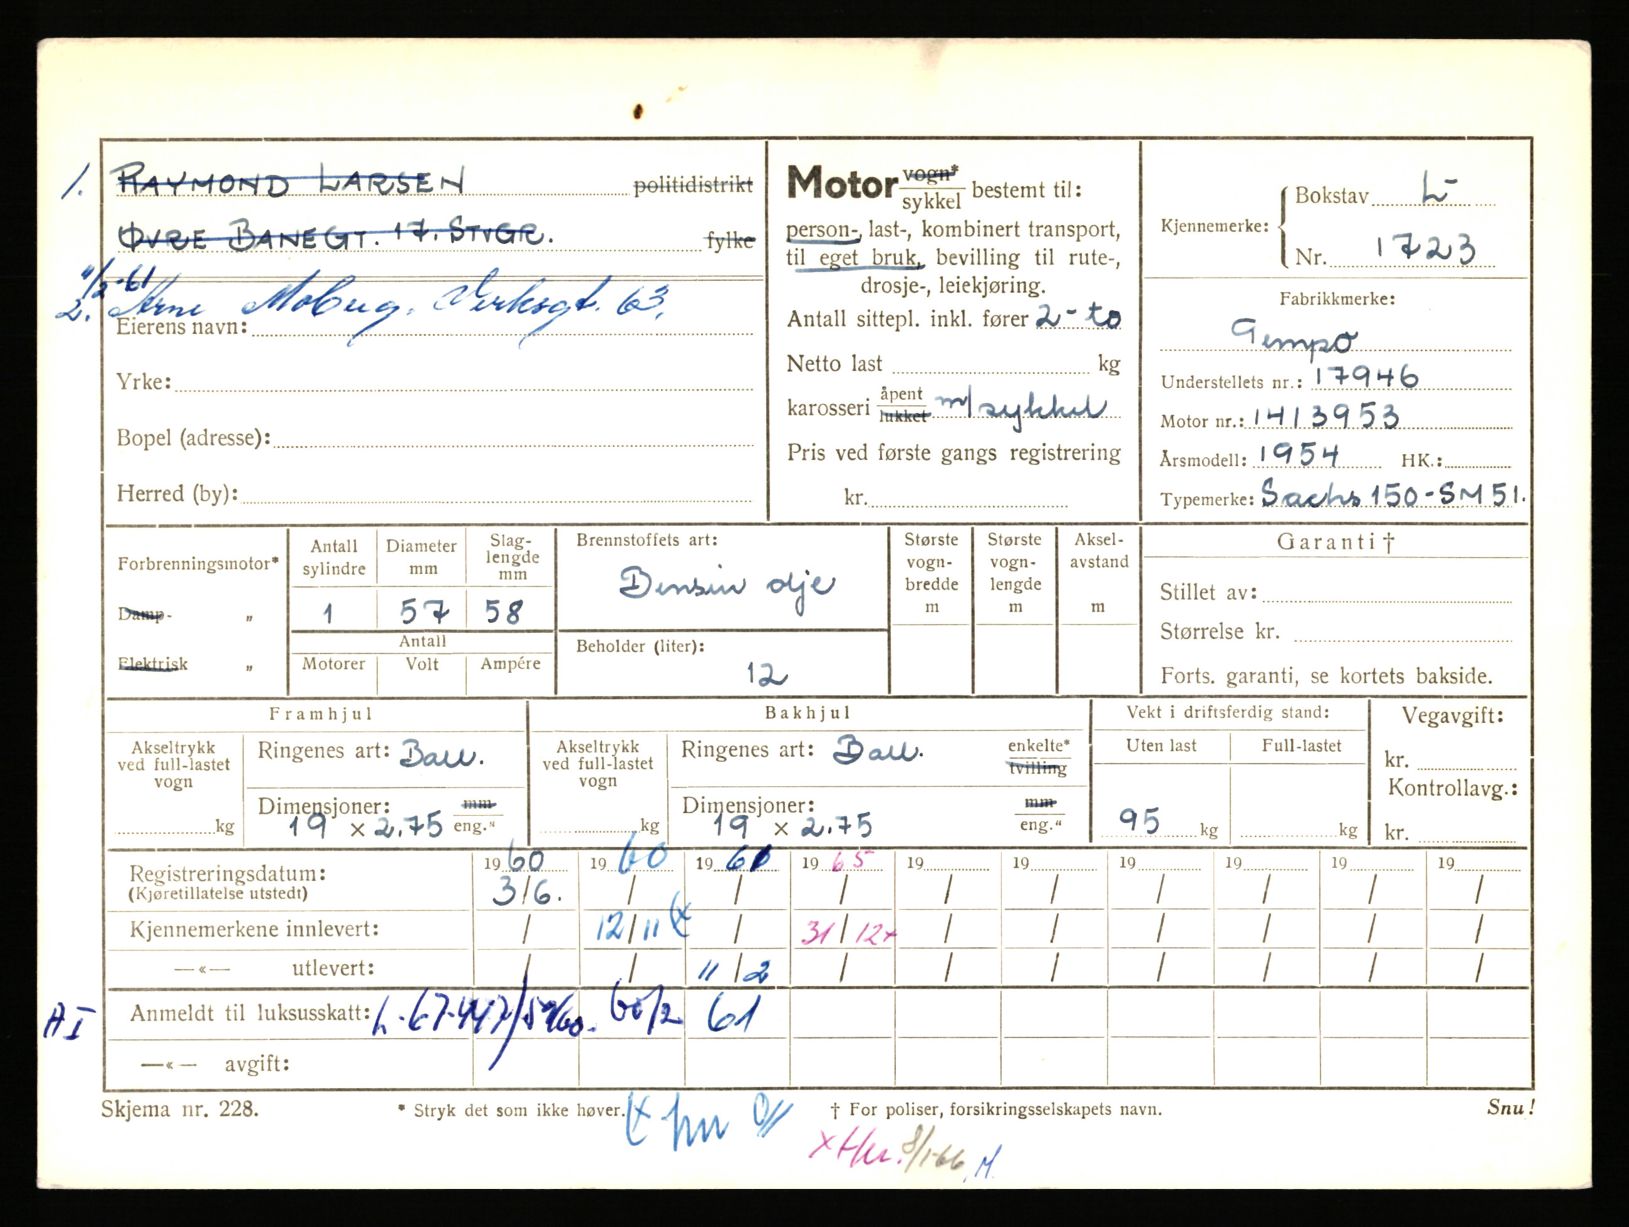 1. RAYMOND LARSEN politidistrikt
ØVRE BANEGT. 17. STVGR. fylke
11/2-61
2. Arne Verksgt. 63.
Eierens navn:
Yrke:
Bopel (adresse):
Herred (by):
Motor vogn* sykkel bestemt til:
person-, last-, kombinert transport,
til eget bruk, bevilling til rute-,
drosje-, leiekjøring.
Antall sittepl. inkl. fører 2- to
Netto last kg
karosseri åpent lukket m/sykkel
Pris ved første gangs registrering
kr.
Kjennemerke: Bokstav L-
Nr. 1723
Fabrikkmerke:
Tempo
Understellets nr.: 17946
Motor nr.: 1413953
Årsmodell: 1954 HK.:
Typemerke: Sachs 150-SM51.
Forbrenningsmotor*
Damp- „
Elektrisk „
Antall sylindre Diameter mm Slag-lengde mm
1 57 58
Antall
Motorer Volt Ampére
Brennstoffets art:
Bensin olje
Beholder (liter):
12
Største vogn-bredde m
Største vogn-lengde m
Aksel-avstand m
Garanti †
Stillet av:
Størrelse kr.
Forts. garanti, se kortets bakside.
Framhjul
Akseltrykk ved full-lastet vogn
kg
Ringenes art: Ball.
Dimensjoner: mm
19 × 2.75 eng."
Bakhjul
Akseltrykk ved full-lastet vogn
kg
Ringenes art: Ball. enkelte* tvilling
Dimensjoner: mm
19 × 2.75 eng."
Vekt i driftsferdig stand:
Uten last Full-lastet
95 kg kg
Vegavgift:
kr.
Kontrollavg.:
kr.
1960 1960 1961 1965 19 19 19 19 19 19
Registreringsdatum:
(Kjøretillatelse utstedt) 3/6. / / / / / / / / /
Kjennemerkene innlevert: / 12/11 x / 31/12x / / / / / /
—«— utlevert: / / 11/2 / / / / / / /
A I Anmeldt til luksusskatt: L-67447/ 60/2 61
—«— avgift:
Skjema nr. 228. * Stryk det som ikke høver. † For poliser, forsikringsselskapets navn. Snu!
8/1-66